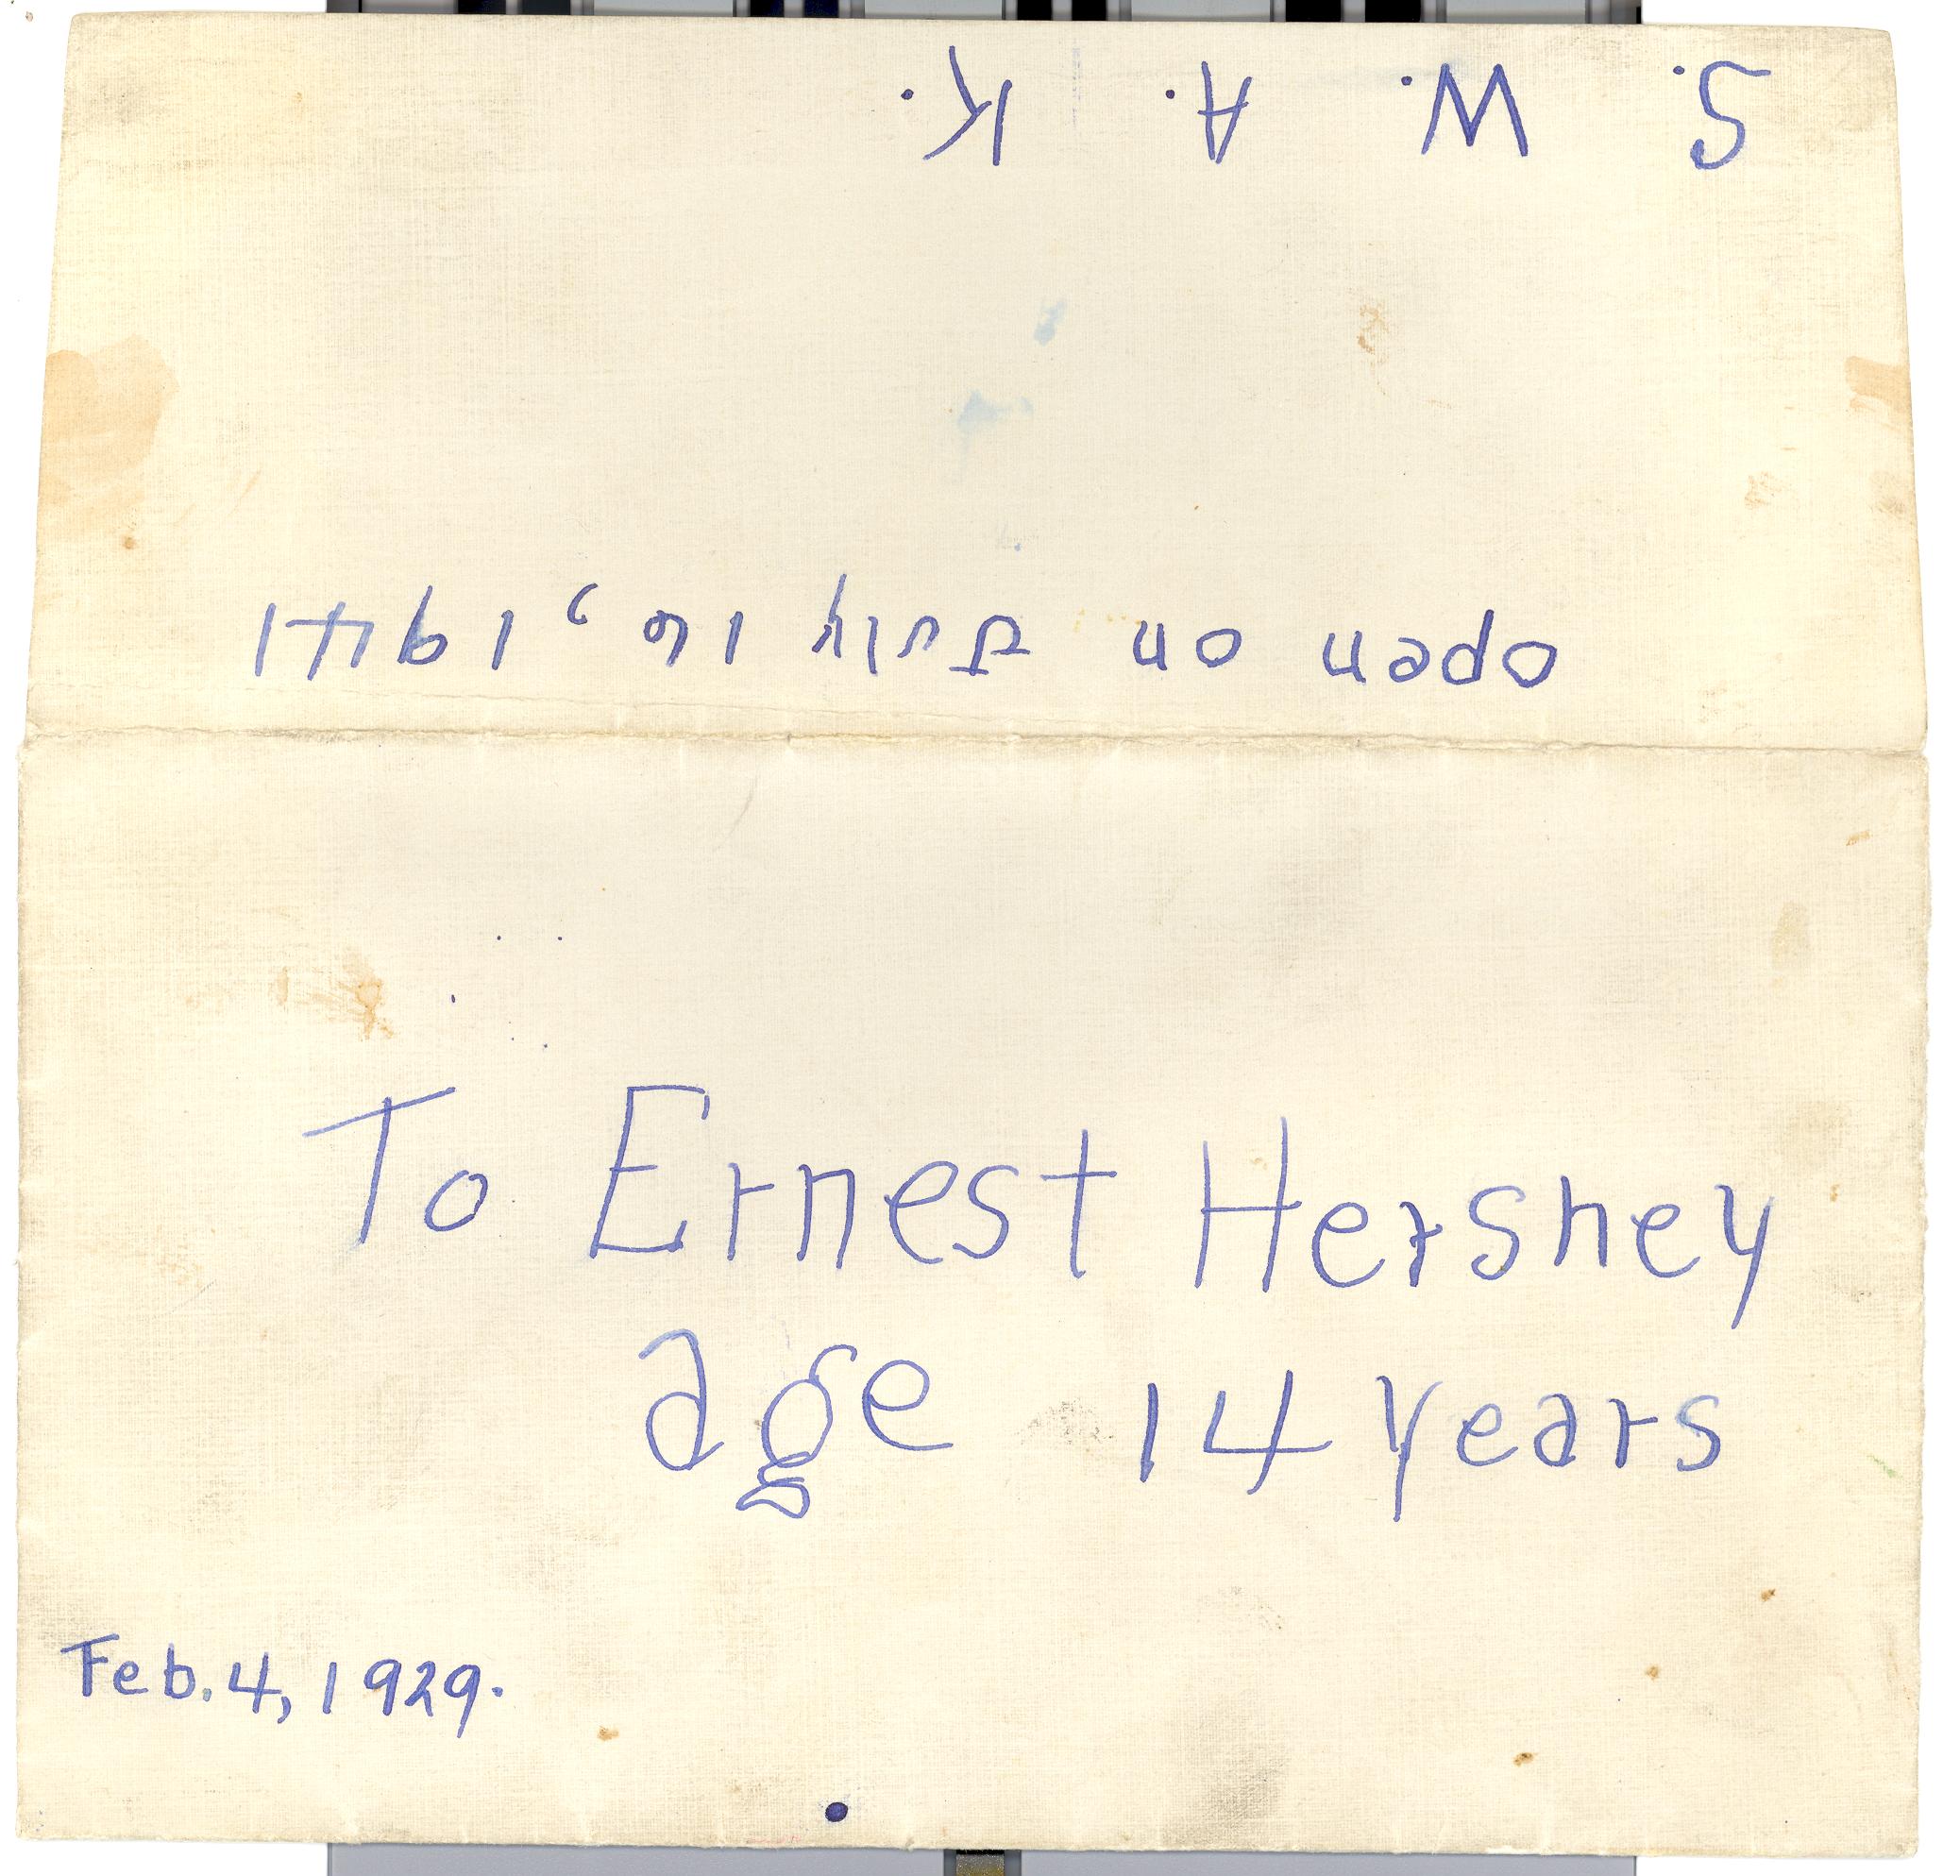 S. W. A. K.
open on July 16, 1941
To Ernest Hershey
age 14 years
Feb. 4, 1929.